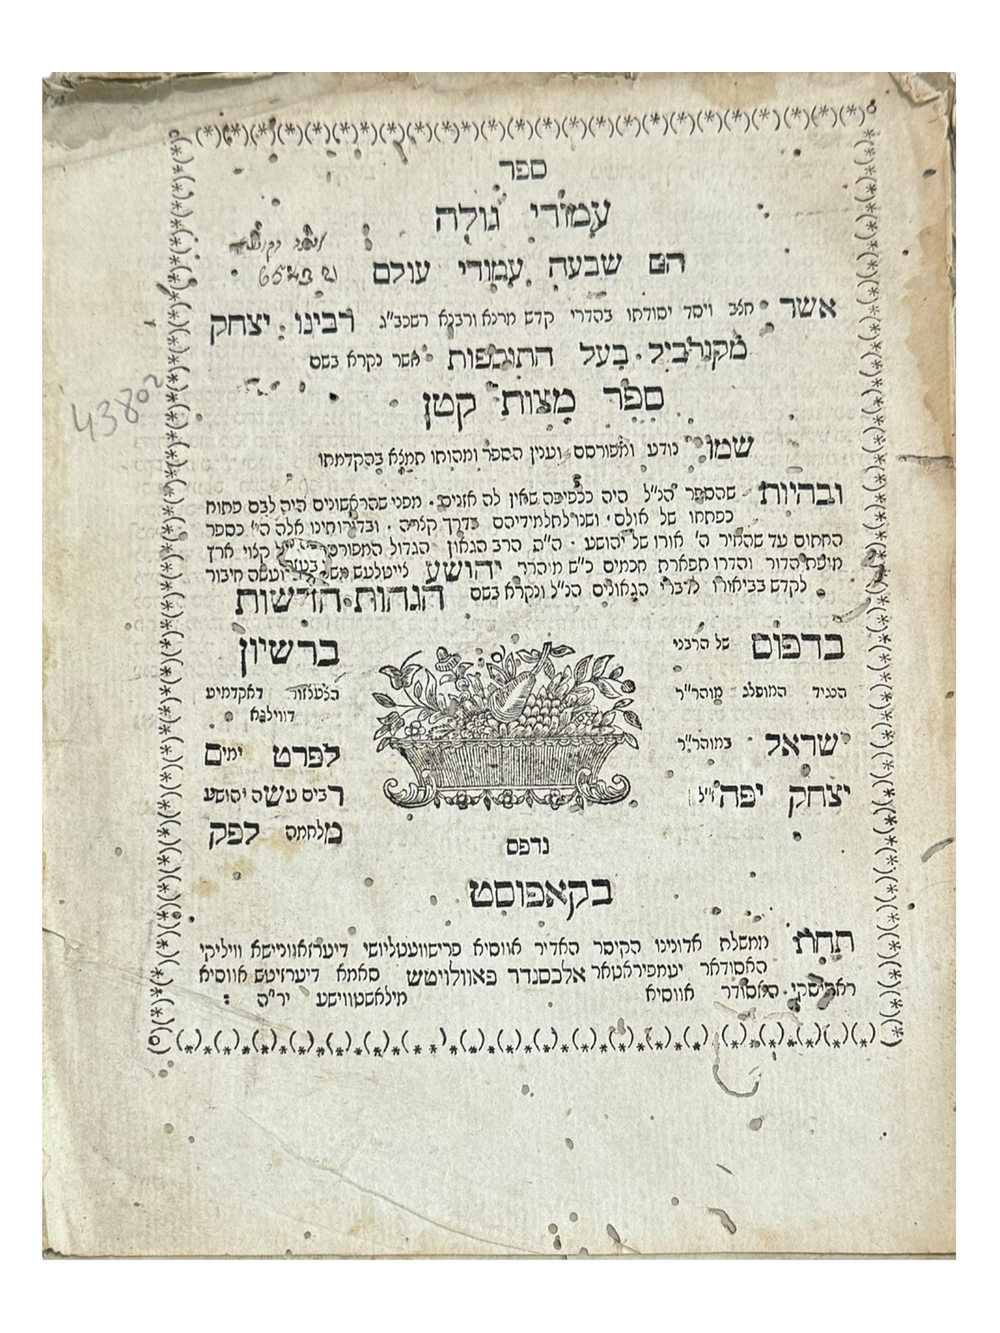 ספר
עמודי גולה
הם שבעה עמודי עולם
אשר חצב ויסד יסודתו בהררי קדש מרנא ורבנא רשכב״ג רבינו יצחק
מקורביל בעל התוספות אשר נקרא בשם
ספר מצות קטן
שמו נודע ומפורסם וענין הספר ומהותו תמצא בהקדמתו
ובהיות שהספר הנ״ל היה ככפיפה שאין לה אזנים מפני שהראשונים היה לבם פתוח
כפתחו של אולם ושנו לתלמידיהם בדרך קצרה ובדורותינו אלה הי׳ כספר
החתום עד שהאיר ה׳ אורו של יהושע ה״ה הרב הגאון הגדול המפורסם קצוי ארץ
מופת הדור והדרו תפארת חכמים כ״ש מוהרר יהושע צייטלעש ועשה חיבור
לקדש בביאורו לדברי הגאונים הנ״ל ונקרא בשם הגהות חדשות
בדפוס של הרבני
הנגיד המופלג מוהר״ר
ישראל במוהר״ר
יצחק יפה ז״ל
ברשיון
הצענזור דאקדמיע
דווילנא
לפרט ימים
רבים עשה יהושע
מלחמה לפק
נדפס
בקאפוסט
תחת ממשלת אדונינו הקיסר האדיר אווסיא פרישוועטליושי דיערזאוונוישא וויליקי
האסודאר יעמפיראטאר אלכסנדר פאוולוויטש סאמא דיערזיטש אווסיא
ראסייסקי האסודר אווסיא מילאשטווישע יר״ה :
43802